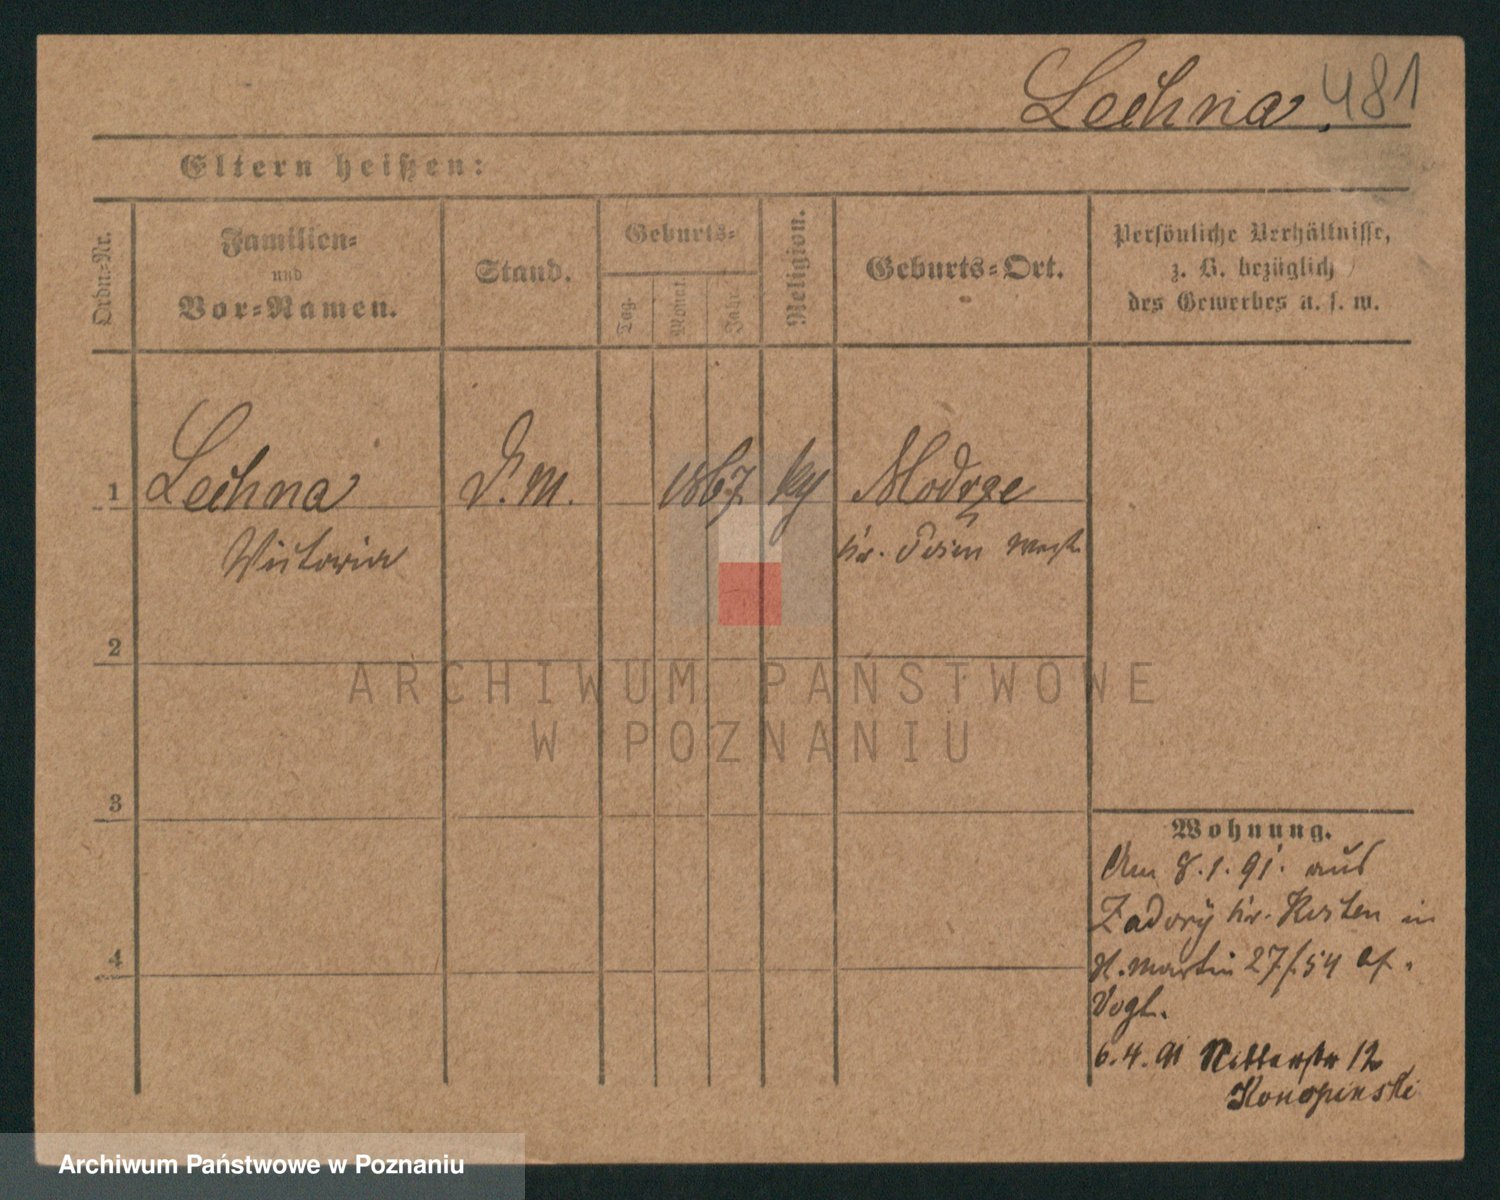 Lechna. 481
Eltern heißen:
Ordn.-Nr.
Familien-
und
Vor-Namen.
Stand.
Geburts-
Tag.
Monat.
Jahr.
Religion.
Geburts-Ort.
Persönliche Verhältnisse,
z. B. bezüglich
des Gewerbes u. s. w.
1 Lechna D. M. 1867 kg Modrze
Victoria Kr. Posen West
2
ARCHIWUM PAŃSTWOWE
W POZNANIU
3
Wohnung.
Am 8.1.91. aus
Zadory Kr. Kosten in
St. Martin 27/
Vogt.
4
6.4.91 Ritterstr 12
Konopinski
Archiwum Państwowe w Poznaniu